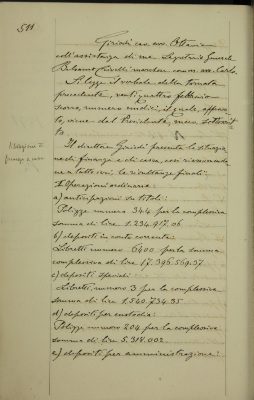 511
Girardi cav. avv. Ottavio
coll'assistenza di me Segretario Generale
Balsamo Crivelli marchese comm. avv. Carlo.
Si legge il verbale della tornata
precedente, ventiquattro febbraio
scorso, numero undici, il quale, approva-
to, viene dal Presidente, meco sottoscrit-
to.
Il direttore Girardi presenta la situazio-
ne di finanza e di cassa, così riassunendo-
ne a tutto ieri le risultanze finali:
Operazioni ordinarie
a) anticipazioni su titoli:
Polizze numero 344 per la complessiva
somma di lire 1.234.917.06
b) depositi in conto corrente:
Libretti numero 6400 per la somma
complessiva di lire 17.396.569.37
c) depositi speciali:
Libretti numero 3 per la complessiva
somma di lire 1.540.734.35
d) depositi per custodia:
Polizze numero 204 per la complessiva
somma di lire 5.318.002
e) depositi per amministrazione: